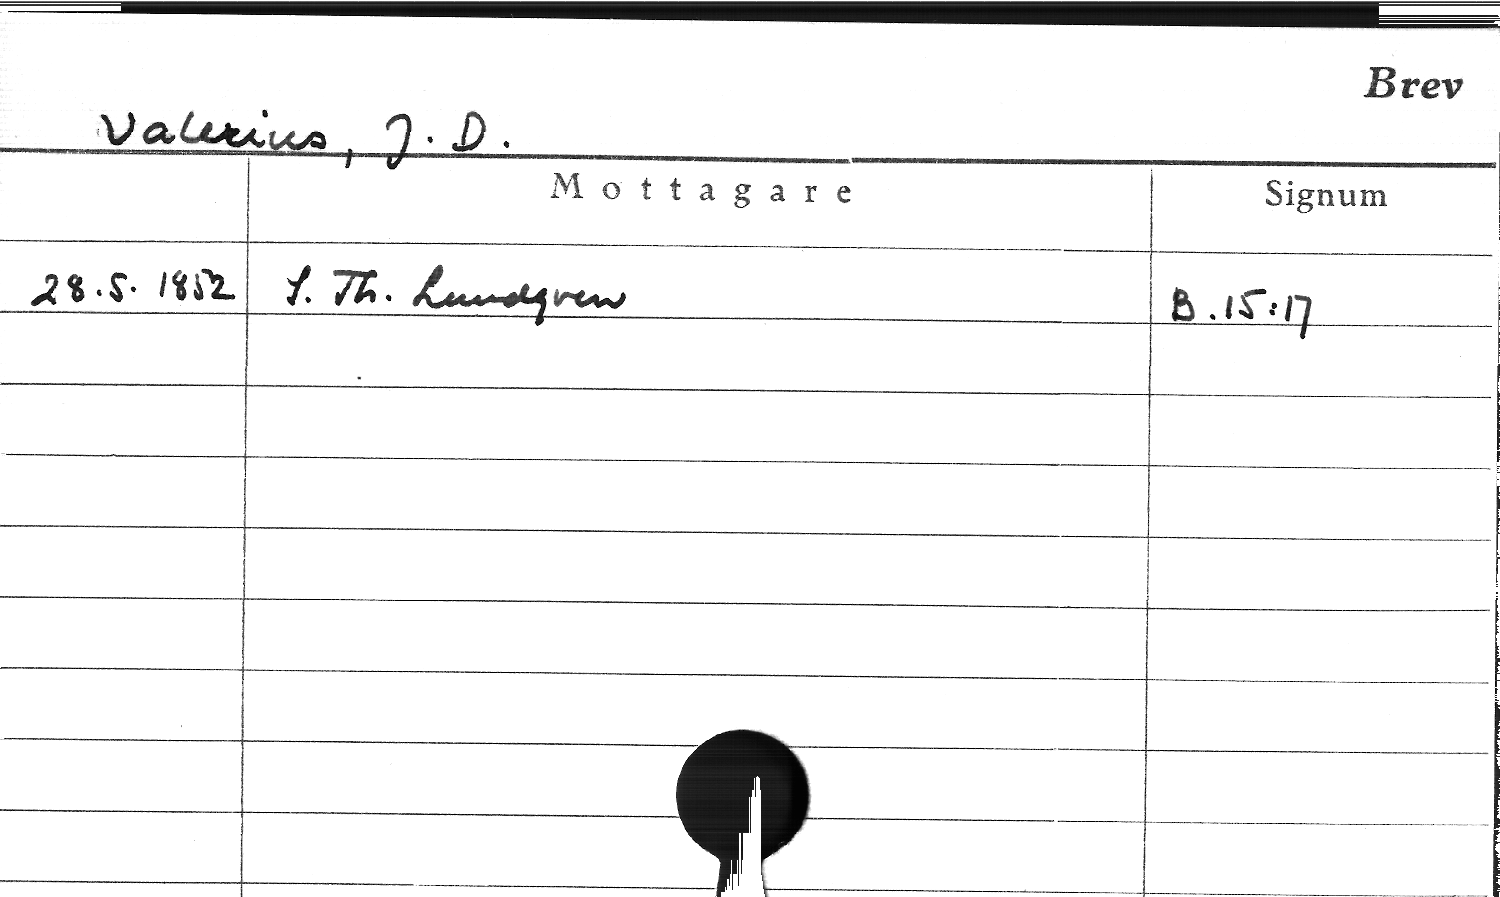 Brev
Valerius, J. D.
Mottagare Signum
28.5. 1852 S. Th. Lundgren B. 15:17